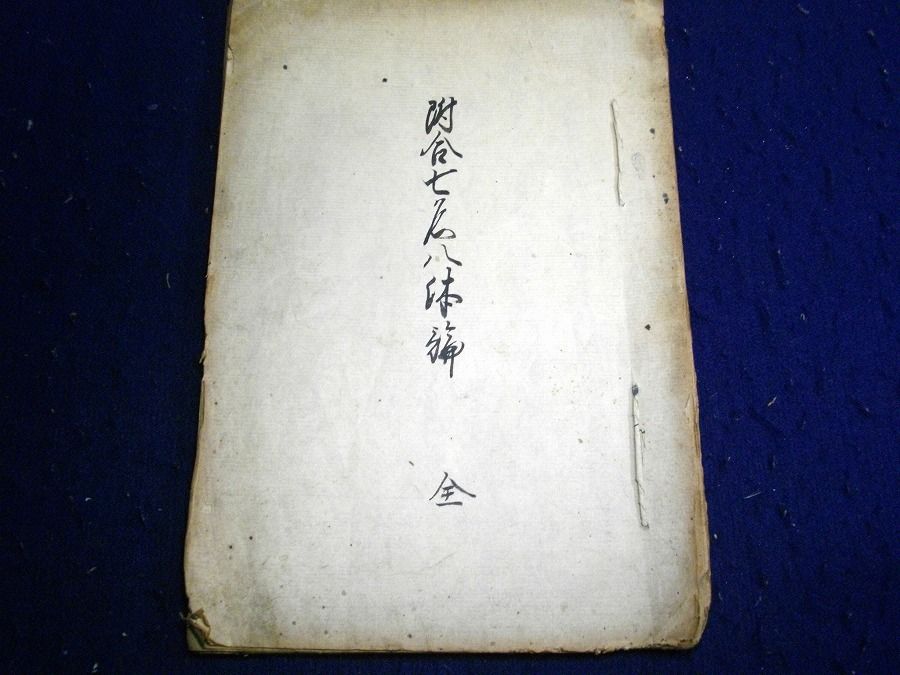 附合七名八体論 全